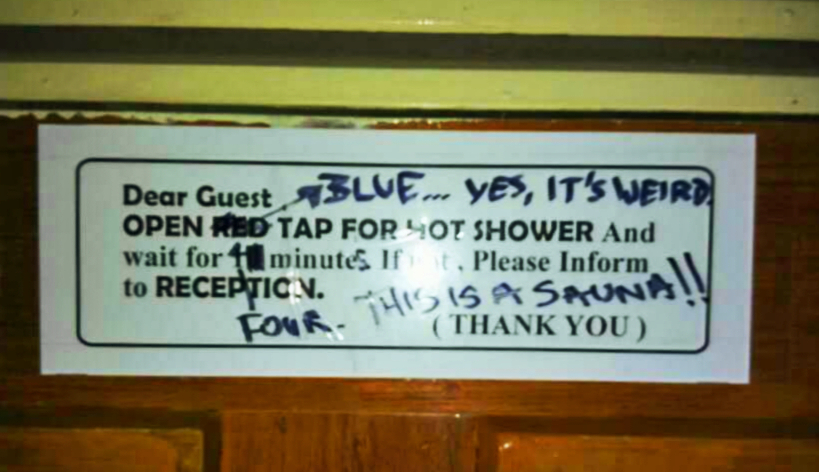 Dear Guest BLUE... YES, IT'S WEIRD.
OPEN RED TAP FOR HOT SHOWER And
wait for minutes. If , Please Inform
to RECEPTION. THIS IS A SAUNA!!
FOUR.
( THANK YOU )